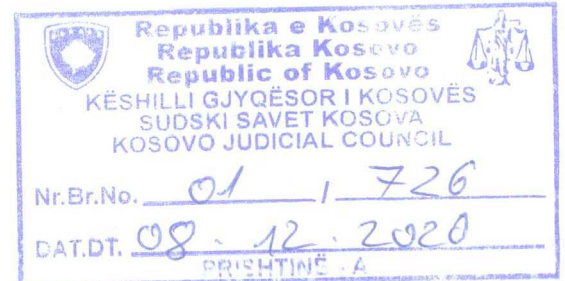 Republika e Kosovës
Republika Kosovo
Republic of Kosovo
KËSHILLI GJYQËSOR I KOSOVËS
SUDSKI SAVET KOSOVA
KOSOVO JUDICIAL COUNCIL
Nr.Br.No. 01 / 726
DAT.DT. 08 . 12 . 2020
PRISHTINË - A